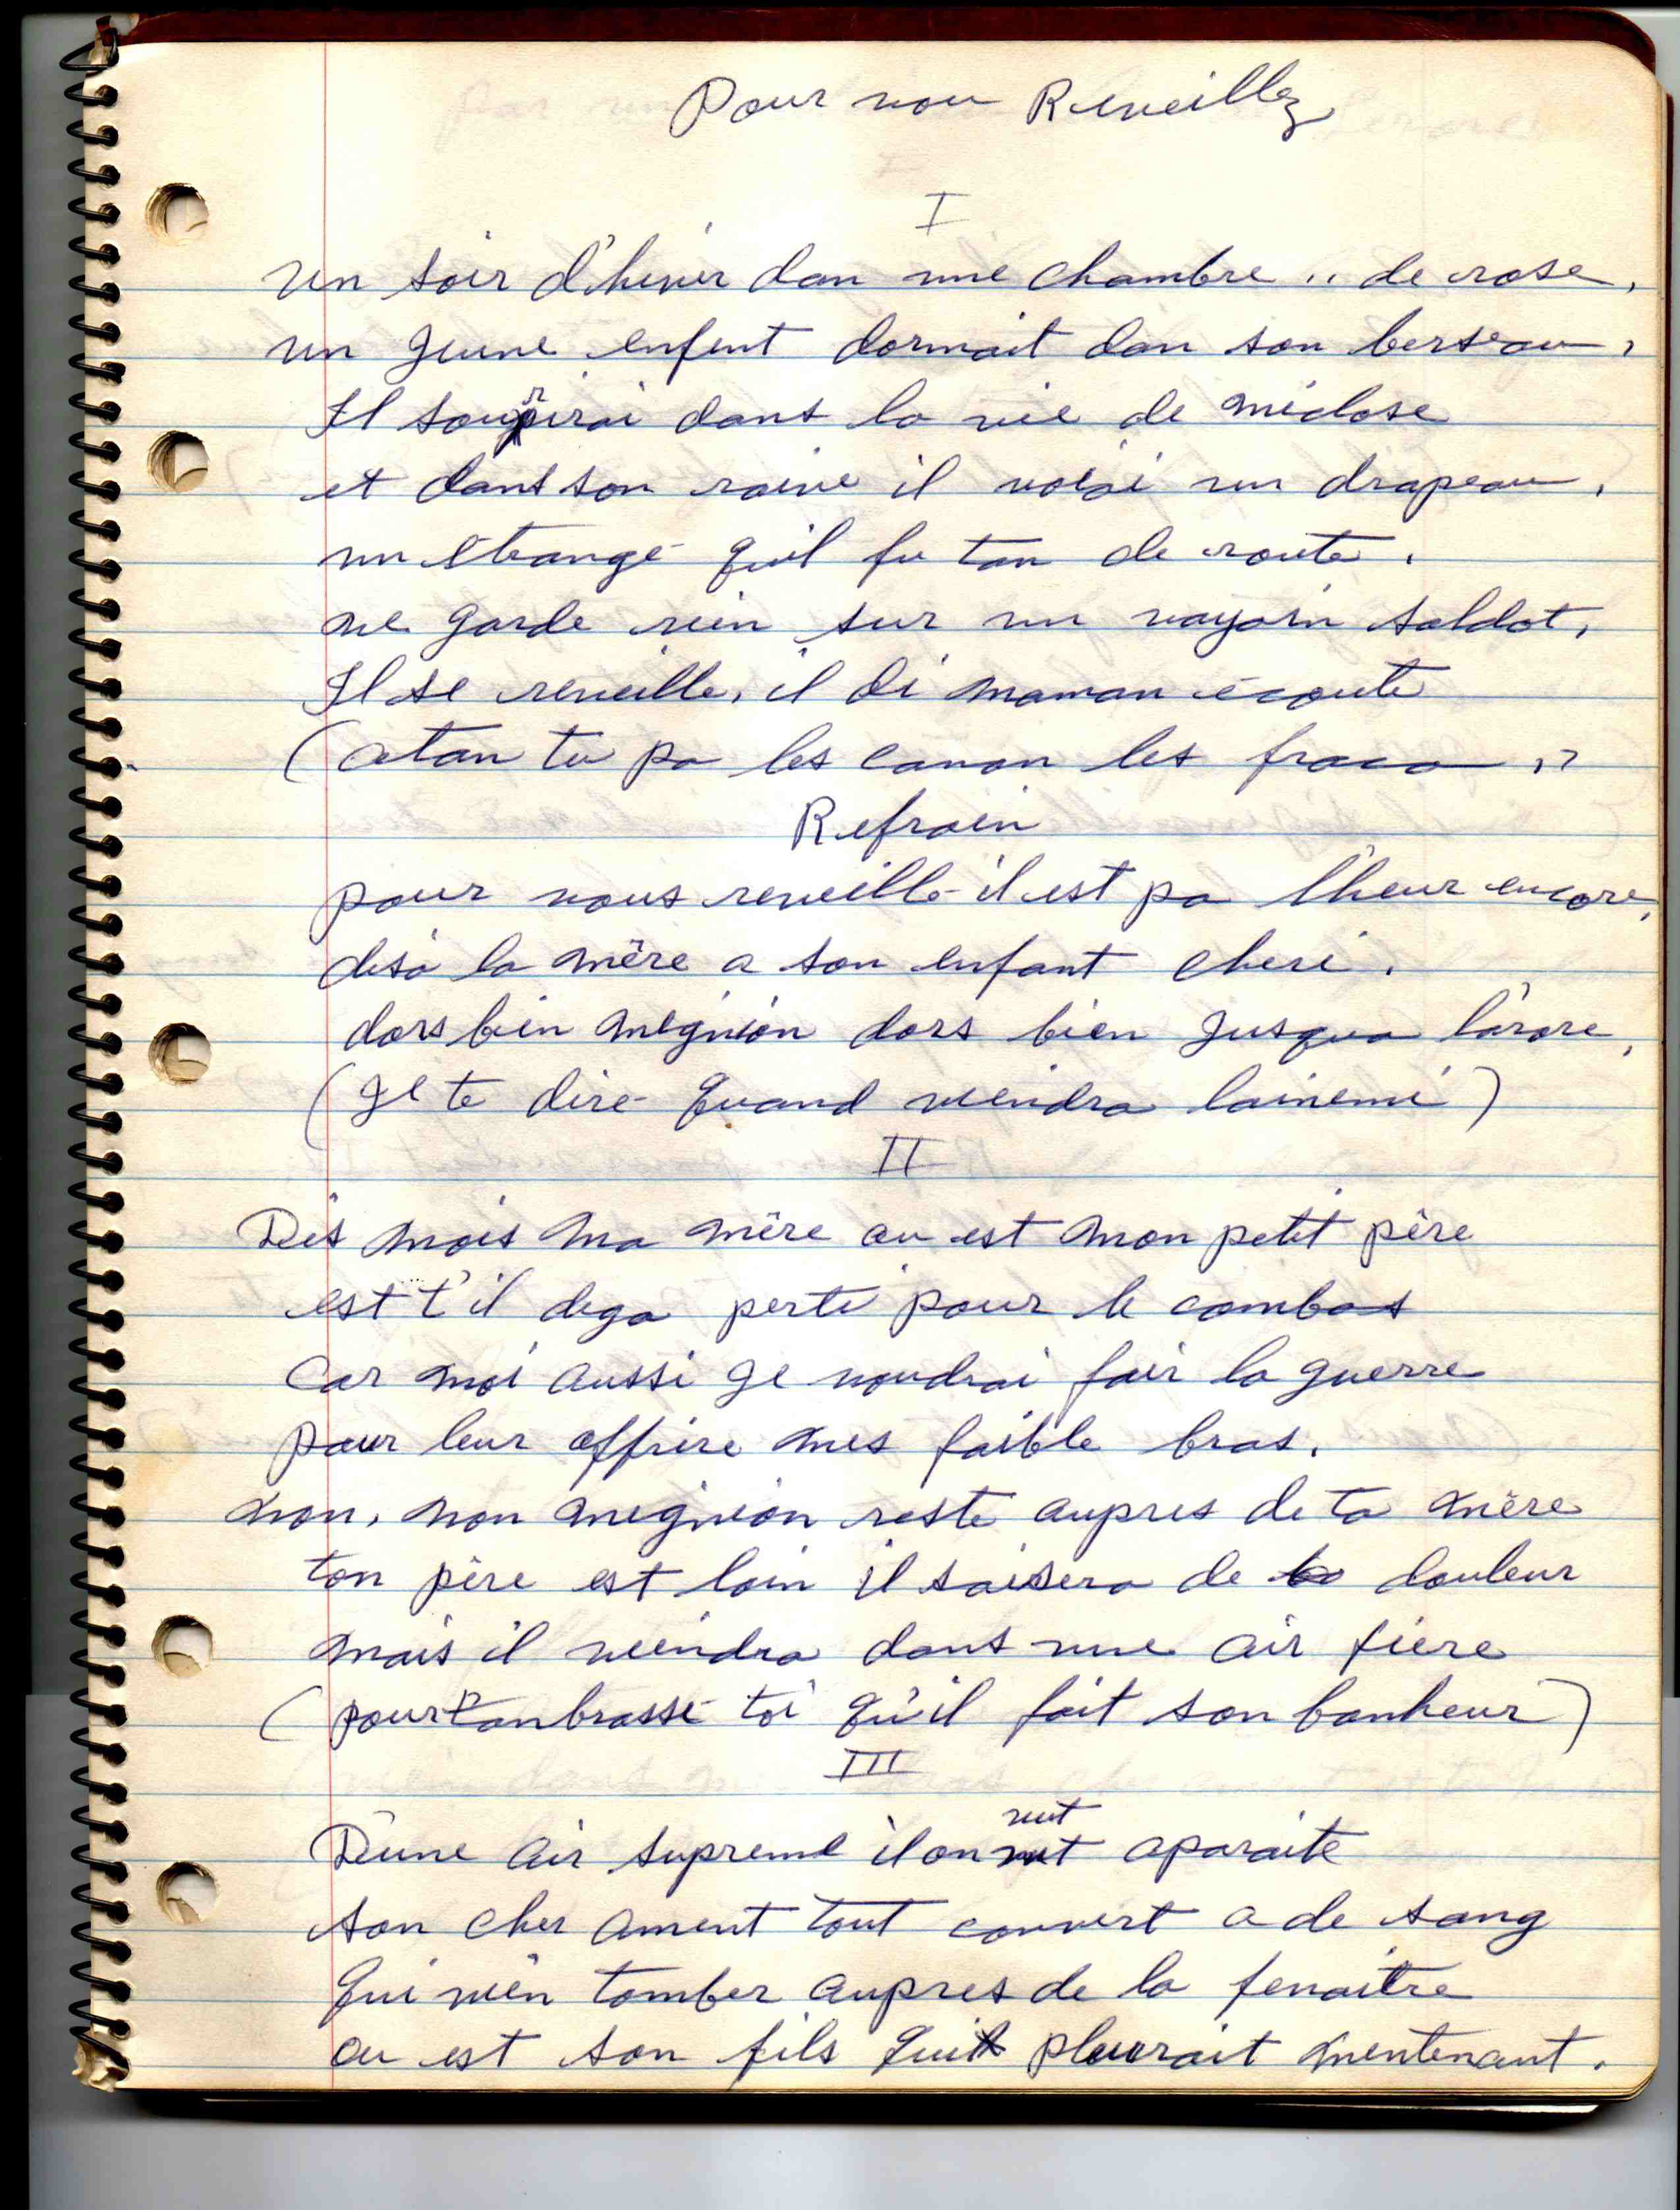 Pour nou Reveillez
I
un soir d'hiver dan une chambre ,, de rose,
un jeune enfent dormait dan son berseau,
Il sourirai dans la vie de méclose
et dant son raive il voiai un drapeau,
un étrangé qu'il fu tan de route,
ne garde rien sur un vayain soldat,
Il se reveille, il di maman écoute
(atan tu pa les canon les fraca ,,
Refrain
pour nous reveillé il est pa l'heur encore,
disa la mère a son enfant cheri.
dors bien mignion dors bien jusqua l'arore,
(je te diré quand viendra lainemi)
II
Dis mois ma mère ou est mon petit père
est t'il dega perti pour le combas
Car moi aussi je voudrai fair la guerre
pour leur offrire mes faible bras.
non, non mignion reste aupres de ta mère
ton père est loin il saisera de douleur
mais il viendra dans une air fiere
(pour tanbrassé toi qu'il fait son bonheur)
III
D'une air supreme il on vut aparaite
son cher ament tout couvert a de sang
qui vien tomber aupres de la fenaitre
ou est son fils qui pleurait mentenant.